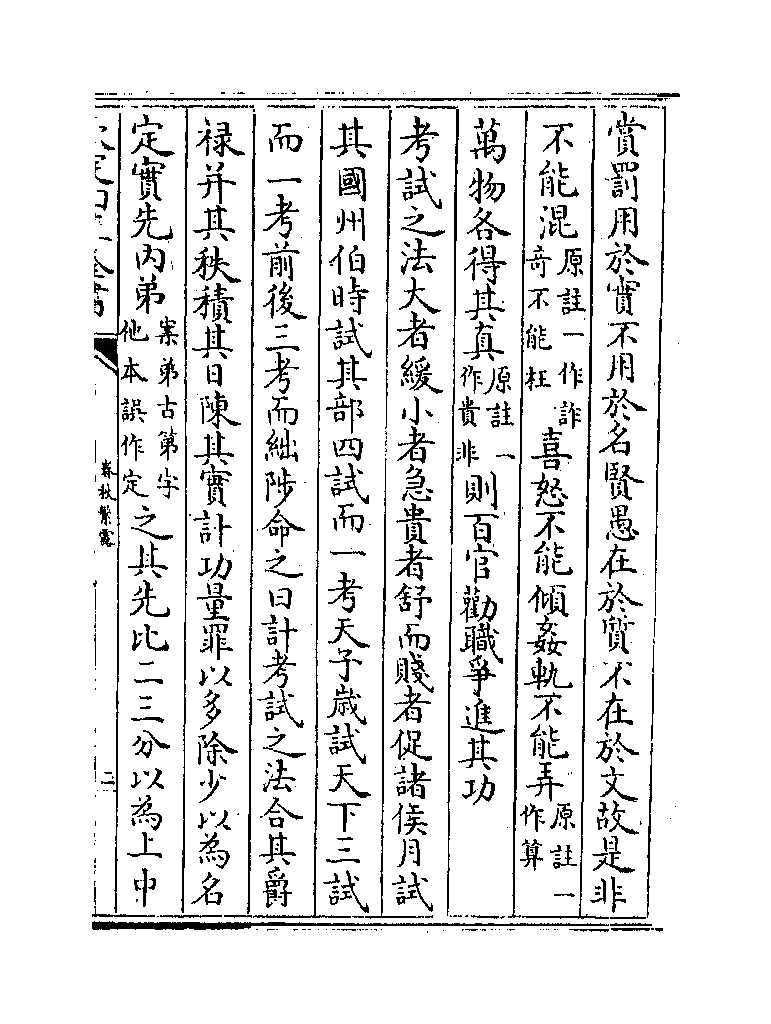 賞罰用於實不用於名賢愚在於質不在於文故是非
不能混原註一作詐奇不能枉喜怒不能傾姦軌不能弄原註一作算
萬物各得其真原註一作貴非則百官勸職爭進其功
考試之法大者緩小者急貴者舒而賤者促諸侯月試
其國州伯時試其部四試而一考天子歲試天下三試
而一考前後三考而絀陟命之曰計考試之法合其爵
祿并其秩積其日陳其實計功量罪以多除少以為名
定實先內弟案弟古第字他本誤作定之其先比二三分以為上中
春秋繁露
二